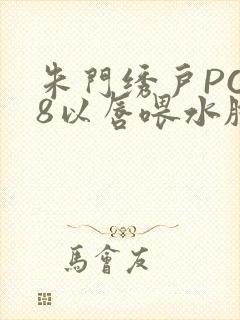 朱門绣戶PO
8以唇喂水
馬會友